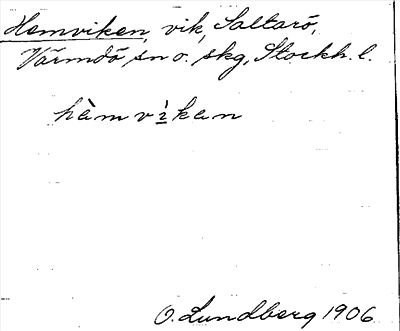 Hemviken, vik, Saltarö,
Värmdö sn o. skg, Stockh. l.
hὰmvìkan
O. Lundberg 1906